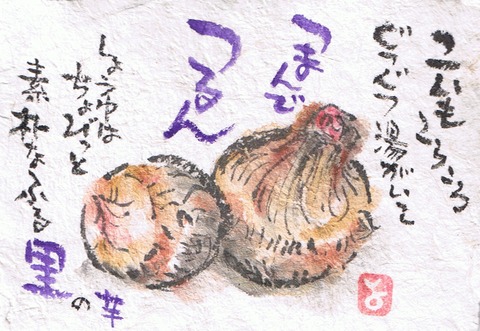 こいもころころ
ぐつぐつ湯がいて
つまんで
つるん
しょうゆは
ちょびっと
素朴なふる里の芋